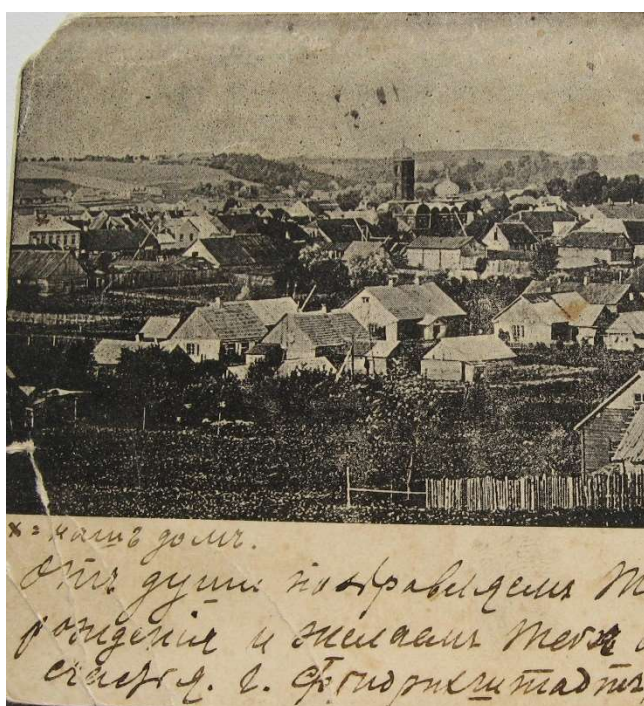 х = нашъ домъ.
Отъ души поздравляемъ
рожденія и желаемъ Тебѣ
счастья. г. Фридрихштадтъ